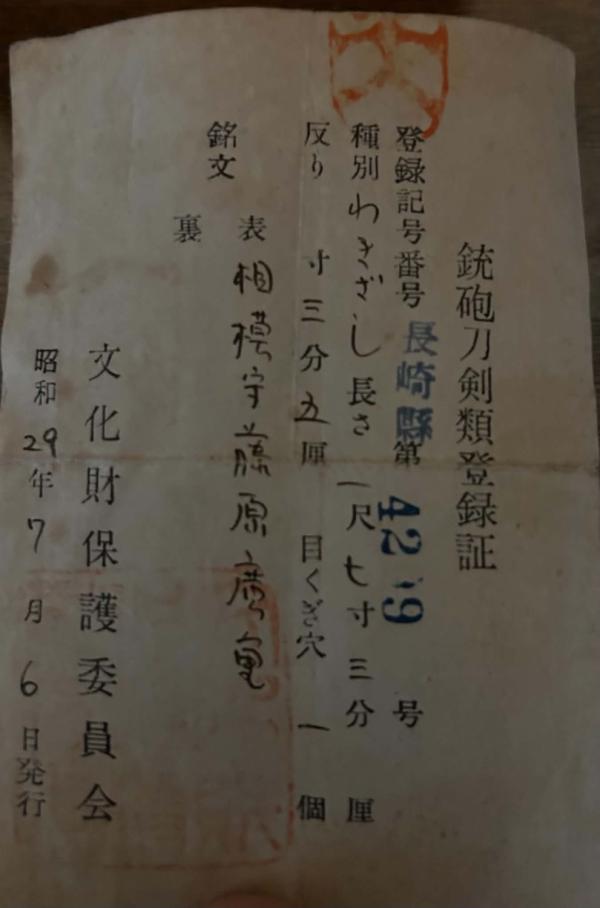 銃砲刀剣類登録証
登録記号番号 長崎縣 第 4219 号
種別 わきざし 長さ 一尺七寸三分 厘
反り 寸三分五厘 目くぎ穴 一個
銘文
表 相模守藤原廣
裏
文化財保護委員会
昭和29年7月6日発行